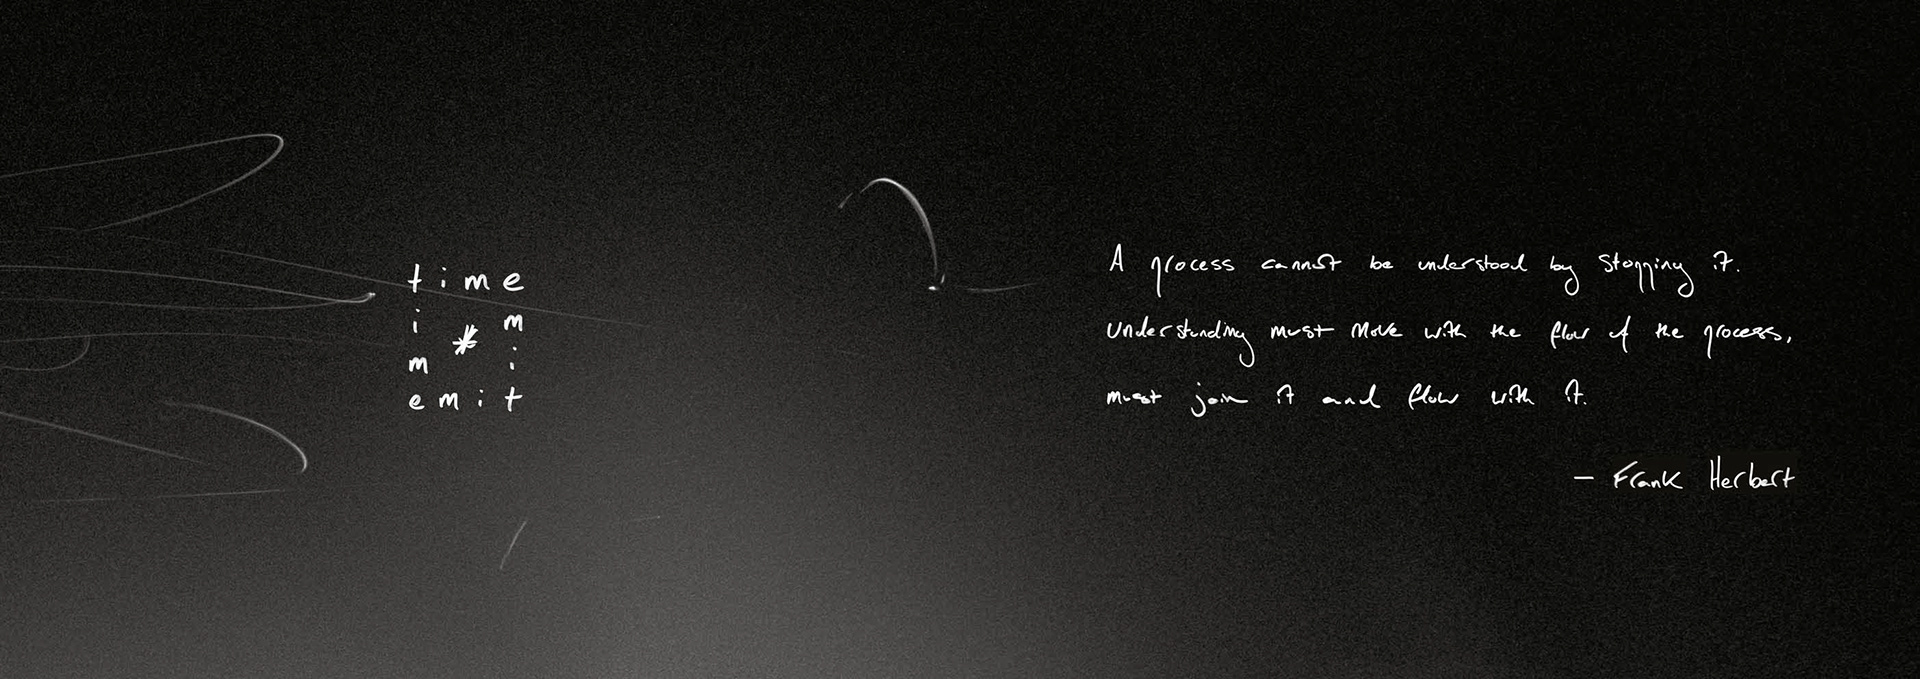 time
i * m
m i
emit
A process cannot be understood by stopping it.
Understanding must move with the flow of the process,
must join it and flow with it.
— Frank Herbert